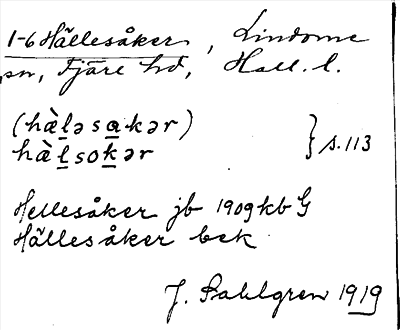 1-6 Hällesåker, Lindome
sn, Fjäre hd, Hall. l.
(hæ̀ḻəsa̱kər)
hæ̀ḻsoḵər } s. 113
Hellesåker jb 1909 kb G
Hällesåker bek
J. Sahlgren 1919